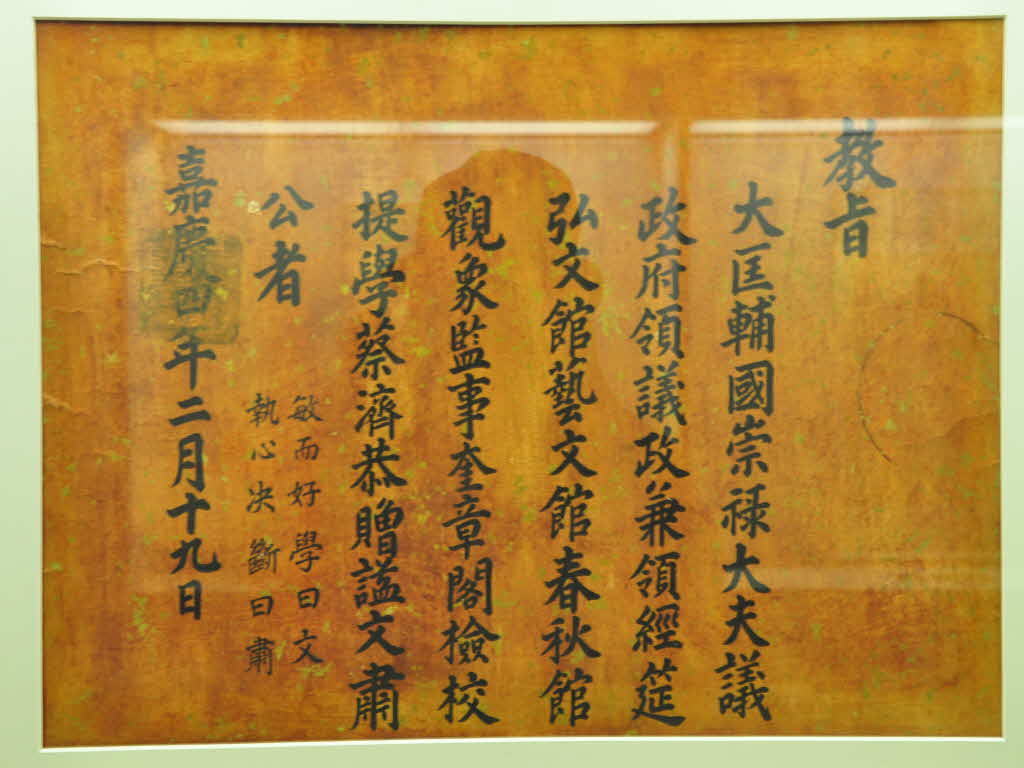 教旨
大匡輔國崇祿大夫議
政府領議政兼領經筵
弘文館藝文館春秋館
觀象監事奎章閣檢校
提學蔡濟恭贈諡文肅
公者
敏而好學曰文
執心決斷曰肅
嘉慶四年二月十九日